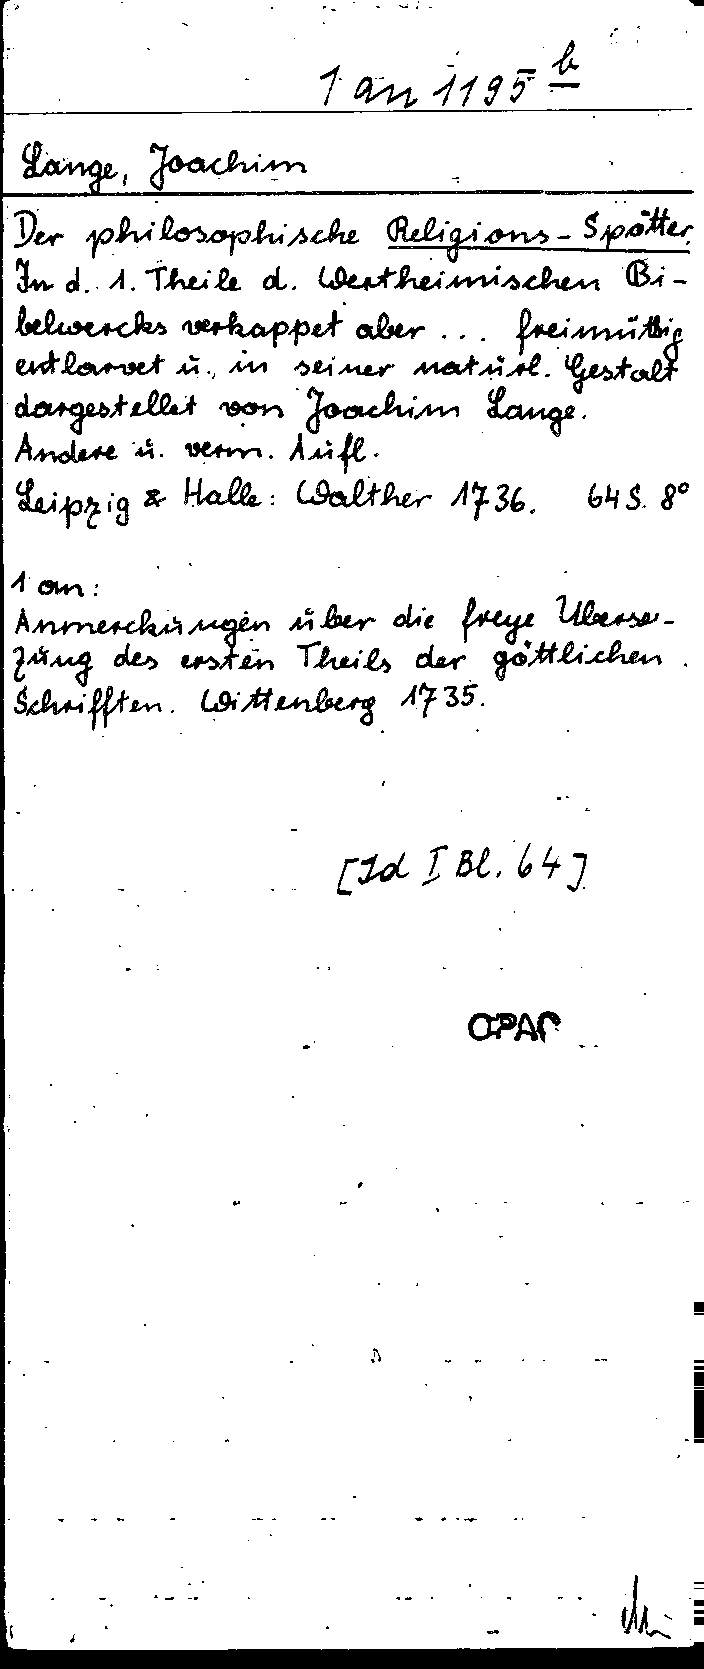 1 an 1195 b
Lange, Joachim
Der philosophische Religions-Spötter.
In d. 1. Theile d. Wertheimischen Bi-
belwercks verkappet aber ... freimüthig
entlarvet u. in seiner natürl. Gestalt
dargestellet von Joachim Lange.
Andere u. verm. Aufl.
Leipzig & Halle: Walther 1736. 64 S. 8°
1 an:
Anmerckungen über die freye Uberse-
zung des ersten Theils der göttlichen
Schrifften. Wittenberg 1735.
[Id I Bl. 64]
OPAC